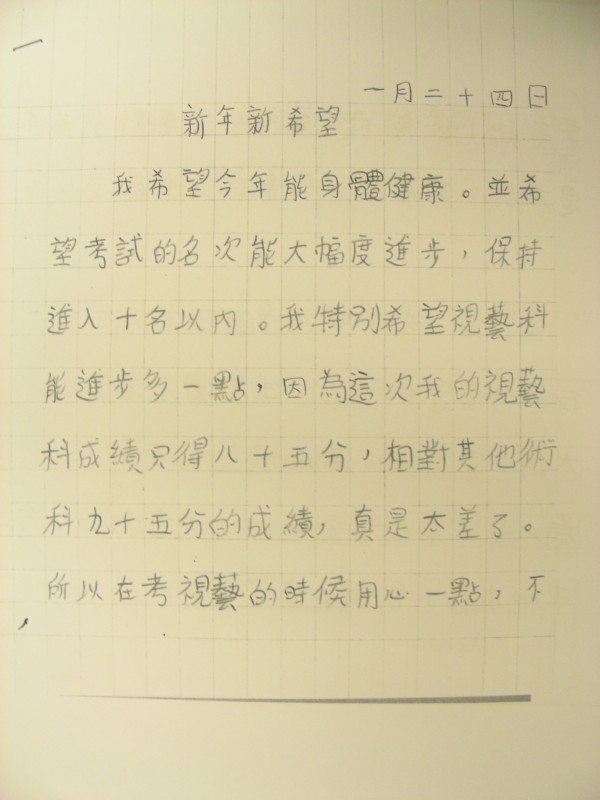 一月二十四日
新年新希望
我希望今年能身體健康。並希
望考試的名次能大幅度進步，保持
進入十名以內。我特別希望視藝科
能進步多一點，因為這次我的視藝
科成績只得八十五分，相對其他術
科九十五分的成績，真是太差了。
所以在考視藝的時候用心一點，不